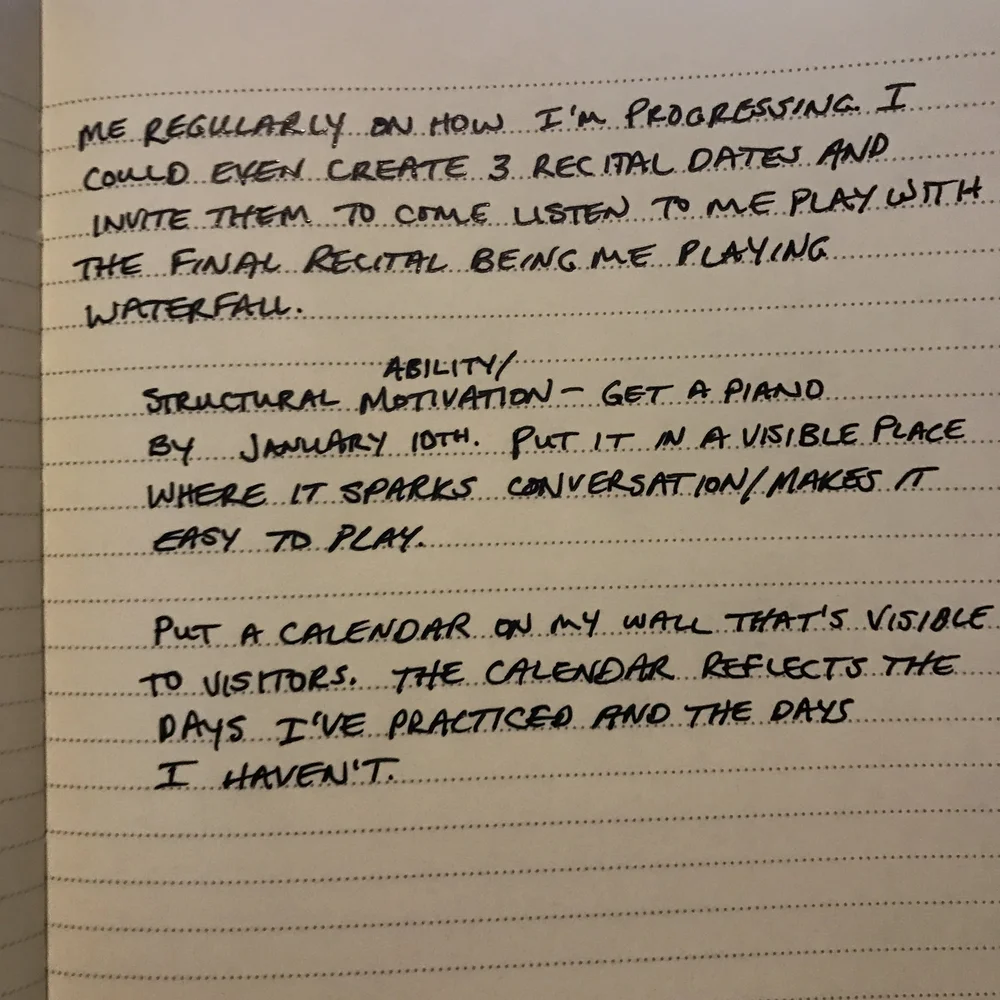 ME REGULARLY ON HOW I'M PROGRESSING. I
COULD EVEN CREATE 3 RECITAL DATES AND
INVITE THEM TO COME LISTEN TO ME PLAY WITH
THE FINAL RECITAL BEING ME PLAYING
WATERFALL.
ABILITY/
STRUCTURAL MOTIVATION - GET A PIANO
BY JANUARY 10TH. PUT IT IN A VISIBLE PLACE
WHERE IT SPARKS CONVERSATION/MAKES IT
EASY TO PLAY.
PUT A CALENDAR ON MY WALL THAT'S VISIBLE
TO VISITORS. THE CALENDAR REFLECTS THE
DAYS I'VE PRACTICED AND THE DAYS
I HAVEN'T.